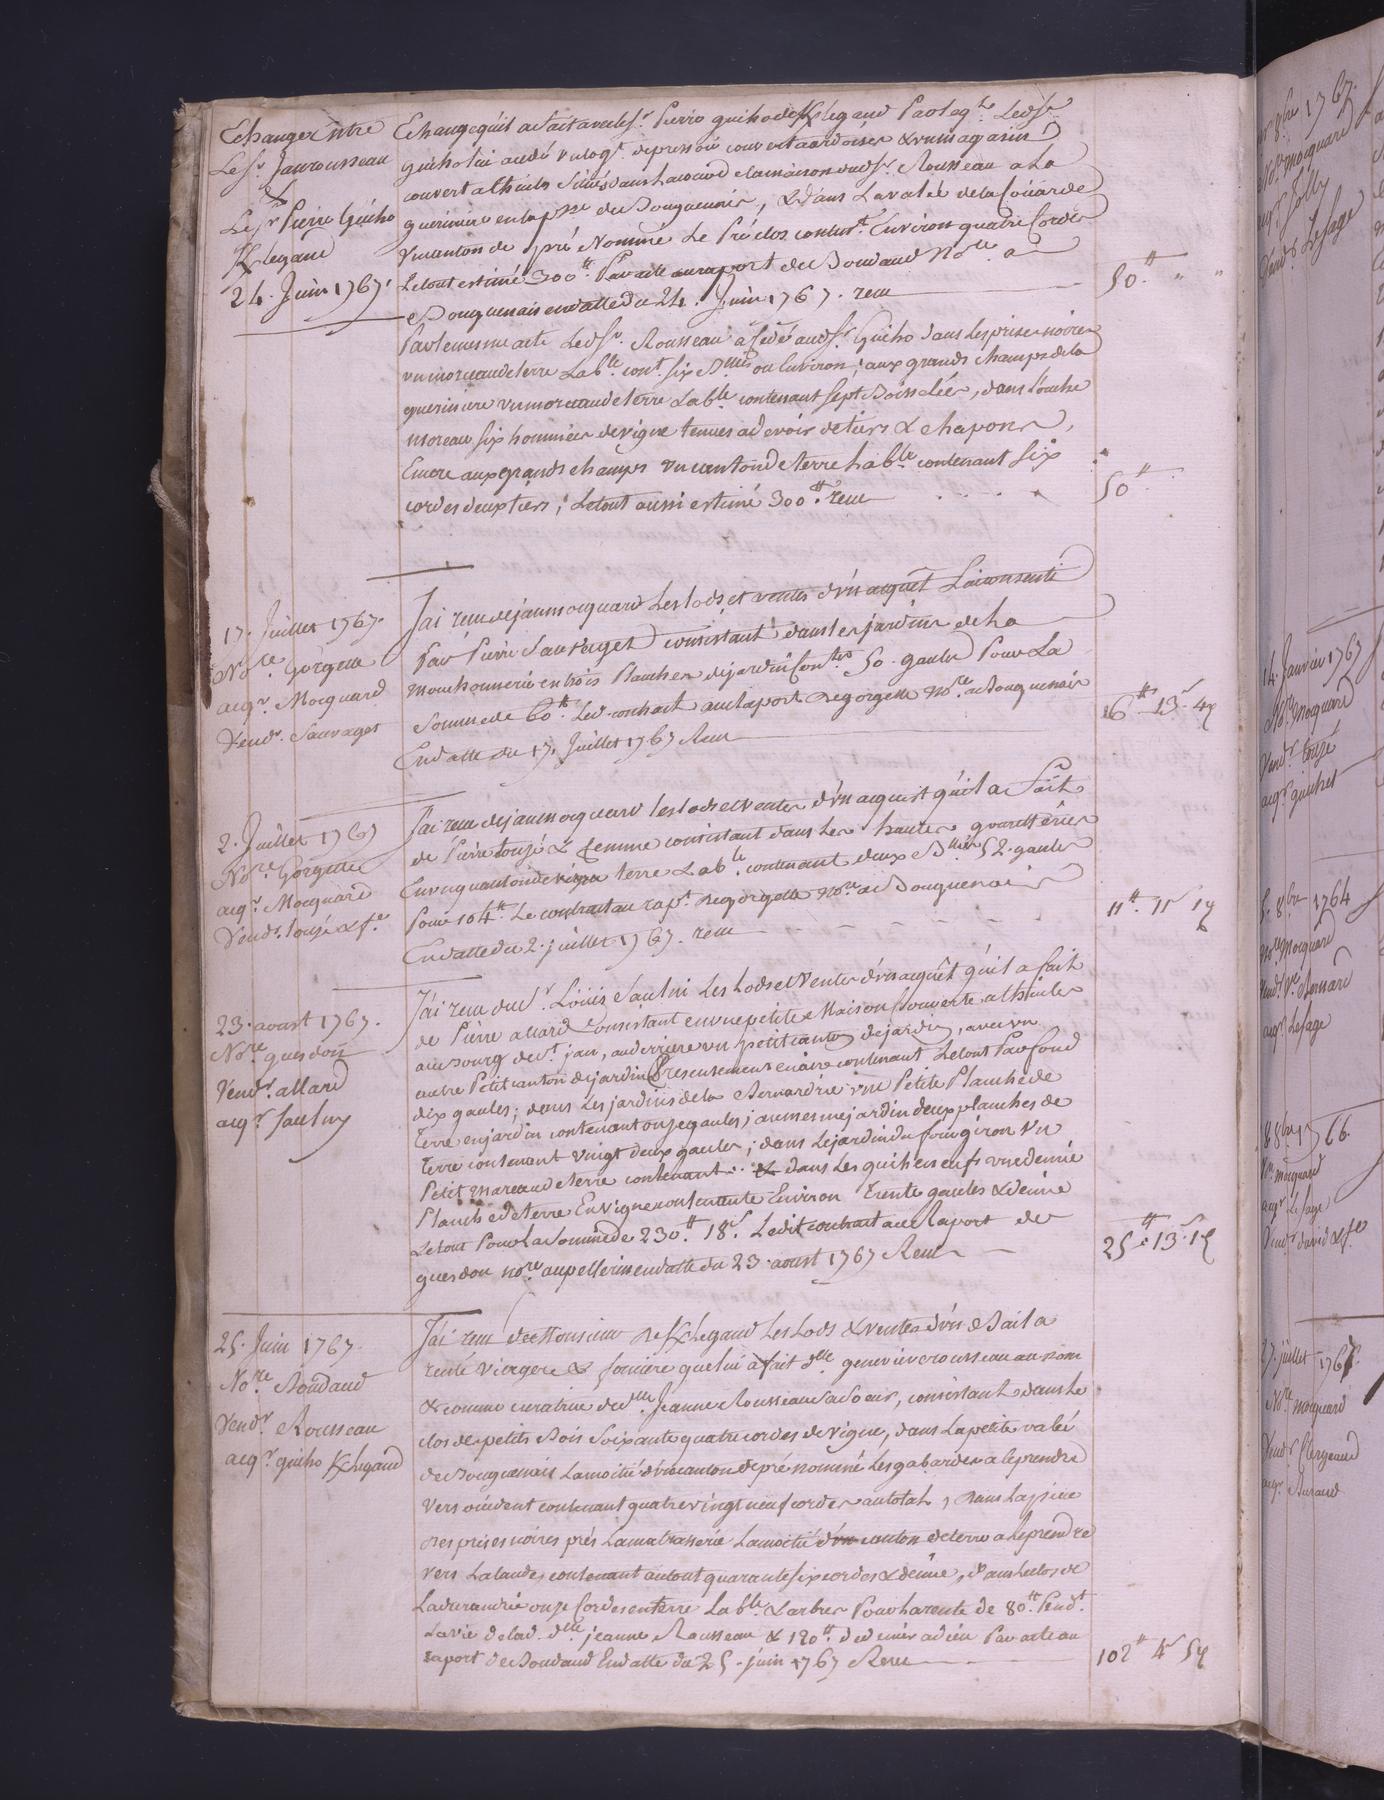 Echange Entre
Le Sr. Jan rousseau
&
Le Sr Pierre Guiho
K/legand
24. Juin 1767.
Echange qu'il a fait avec le Sr. Pierre guiho de K/legand Par leql. Ledsr.
guiho lui a cédé un log.t de pressoir couvert a ardoises & un magasin
couvert a thuiles situés dans la cour de la maison dudsr. Rousseau a La
guerinière en la psse de Bouguenais, & dans La valée de la Couarde
Un canton de pré Nommé Le Pré clos conten.t Environ quatre Cordes
Le tout estimé 300tt Par acte au raport de Boudaud Nore. a
Bouguenais en datte du 24. Juin 1767. reçu
50.tt " "
Par le mesme acte Ledsr. Rousseau a cédé audsr. Guiho dans les prises noires
un morceau de terre Lable. cont. six Blles ou Environ, aux grands champs de la
gueriniere un morceau de terre Lable contenant sept Boisselées, dans l'ouche
moreau six hommées de vigne tenues a devoir de tiers & chapons,
Encore aux grands champs Un canton de terre Lable. contenant six
cordes deux tiers, Le tout aussi estimé 300.tt reçu
50tt
17. Juillet 1767.
Nore Gorgette
acqr. Mocquard
Vendr. Sauvaget
J'ai reçu de jan mocquard Les lods et ventes d'un acquêt Lai consenti
Par Pierre Sauvaget consistant dans les jardins de La
mouchonnerie en trois Planches de jardin Conten 50. gaules Pour La
Somme de 60tt Led. contract au raport de gorgette nore. a Bouguenais
En datte du 17. Juillet 1767 Reçu
16tt 13s 4d
2. Juillet 1767
Nore. Gorgette
acqr. Mocquard
Vendr. touzé & fe.
J'ai reçu de jan mocquard les lods et ventes d'un acquest qu'il a fait
de Pierre touzé & femme consistant dans Les hautes
En un canton de terre Lable. contenant deux Blles 52. gaules
Pour 104tt. Le contract au rapt. de gorgette nore a Bouguenais
En datte du 2. juillet 1767. reçu
11tt. 11s 1d
23. aoust 1767.
Nore guesdon
Vendr. allard
acqr Saulny
J'ai reçu du Sr. Loüis Saulni Les Lods et Ventes d'un acquêt qu'il a fait
de Pierre allard Consistant en une petite Maison couverte a thuiles
au bourg de St. jan, au derriere un petit canton de jardin, avec un
autre Petit canton de jardin contenant Le tout Par fond
dix gaules; dans Les jardins de la Bernardrie une Petite Planche de
terre en jardin contenant onze gaules; au mesme jardin deux planches de
terre contenant vingt deux gaules; dans Le jardin du fourgiron Un
Petit morceau de terre contenant.. & dans Les une demie
Planche de terre En vigne contenante Environ Trente gaules & demie
Le tout Pour La somme de 230.tt 18s. Ledit contract au Raport de
guesdon nore au pellerin en datte du 23. aoust 1767 Reçu
25tt. 13. 1d
25. Juin 1767.
Nore Boudaud
Vendr Rousseau
acqr. guiho K/legand
J'ai reçu de Monsieur de K/legand Les Lods & ventes d'un Bail a
rente Viagere & fonciere que lui a fait dlle genevieve rousseau au nom
& comme curatrice de dlle. Jeanne Rousseau sa soeur, consistant dans Le
clos des petits Bois soixante quatre cordes de vigne, dans La petite valée
de Bouguenais La moitié d'un canton de pré nommé Les gabardes a le prendre
Vers occident contenant quatre vingt neuf cordes au total, dans La piece
des prises noires prés La La moitié d'un canton de terre a le prendre
vers La lande, contenant au tout quarante six cordes & demie, dans Le clos de
La durandrie onze Cordes en terre Lable. & arbres Pour La rente de 80.tt Pendt.
La vie de lad. dlle. jeanne Rousseau & 120tt. de denier a dieu Par acte au
raport de Boudaud En datte du 25. juin 1767 Reçu
102tt 4s 5d
1767.
mocquard
Jolly
Vendr Lesage
14. Janvier 1767
Nore. mocquard
Vendr touzé
acqr guichet
5. 8bre 1764
nore Mocquard
Vendr. Ve Bernard
acqr. Lesage
8bre 1766.
mocquard
acqr. Le Sage
Vendr david & fe
27. juillet 1767.
Nre mocquard
Vendr Clergeaud
acqr. Buraud